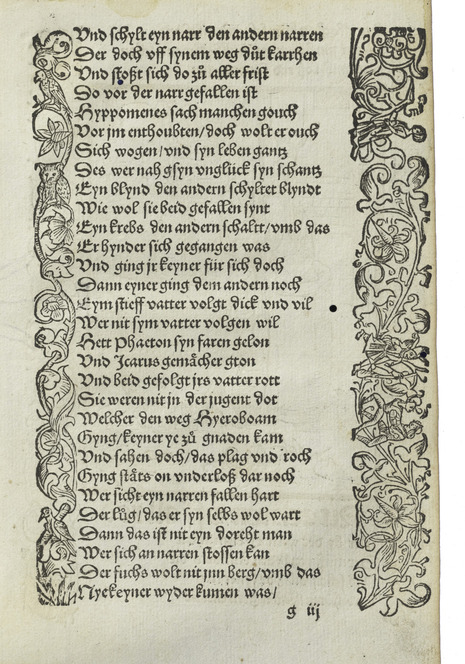 Vnd schylt eyn narr den andern narren
Der doch vff synem weg důt karrhen
Vnd stoßt sich do zů aller frist
Do vor der narr gefallen ist
Hyppomenes sach manchen gouch
Vor jm enthoubten / doch wolt er ouch
Sich wogen / vnd syn leben gantz
Des wer nah gsyn vnglück syn schantz
Eyn blynd den andern schyltet blyndt
Wie wol sie beid gefallen synt
Eyn krebs den andern schaltt / vmb das
Er hynder sich gegangen was
Vnd ging jr keyner für sich doch
Dann eyner ging dem andern noch
Eym stieff vatter volgt dick vnd vil
Wer nit sym vatter volgen wil
Hett Phaeton syn faren gelon
Vnd Icarus gemächer gton
Vnd beid gefolgt jrs vatter rott
Sie weren nit jn der jugent dot
Welcher den weg Hyeroboam
Gyng / keyner ye zů gnaden kam
Vnd sahen doch / das plag vnd roch
Gyng stäts on vnderloß dar noch
Wer sicht eyn narren fallen hart
Der lůg / das er syn selbs wol wart
Dann das ist nit eyn doreht man
Wer sich an narren stossen kan
Der fuchs wolt nit jnn berg / vmb das
Nye keyner wyder kumen was /
g iij